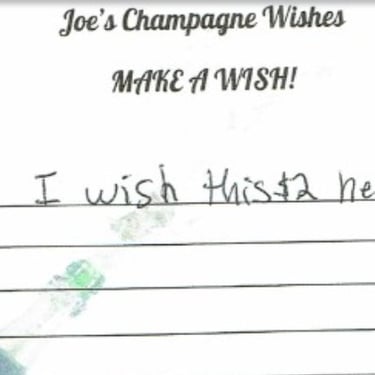 Joe's Champagne Wishes
MAKE A WISH!
I wish this $2 he